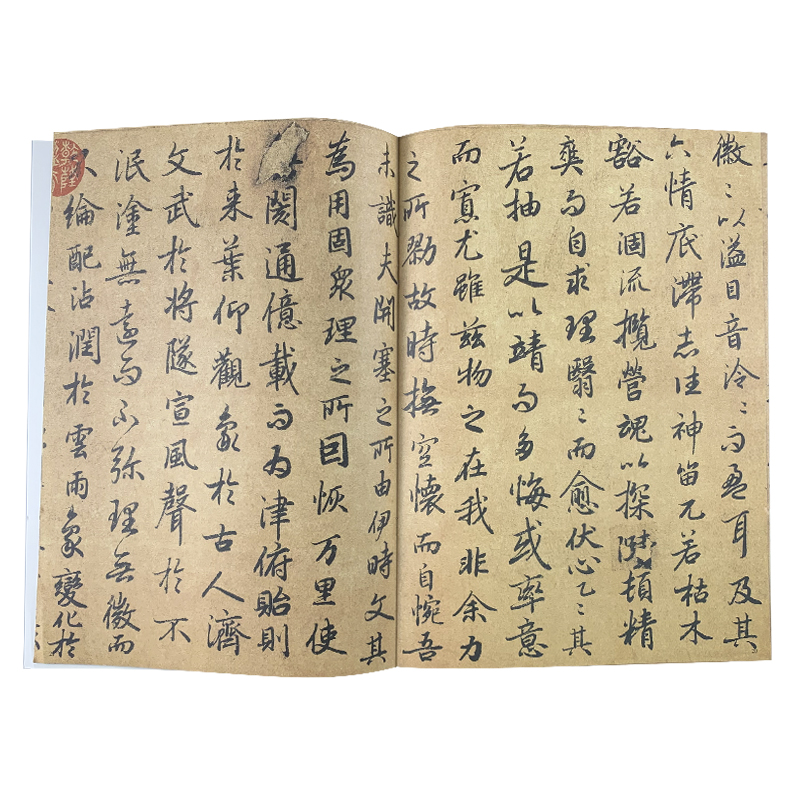 徽〻以溢目音泠〻而盈耳及其
六情底滯志往神留兀若枯木
豁若涸流攬營魂以探賾頓精
爽而自求理翳〻而愈伏心乙〻其
若抽是以靖而多悔或率意
而寡尤雖茲物之在我非余力
之所勠故時撫空懷而自惋吾
未識夫開塞之所由伊時文其
為用固眾理之所因恢万里使
閡通億載而為津俯貽則
於来葉仰觀象於古人濟
文武於将隧宣風聲於不
泯塗無遠而不弥理無微而
綸配沾潤於雲雨象變化於